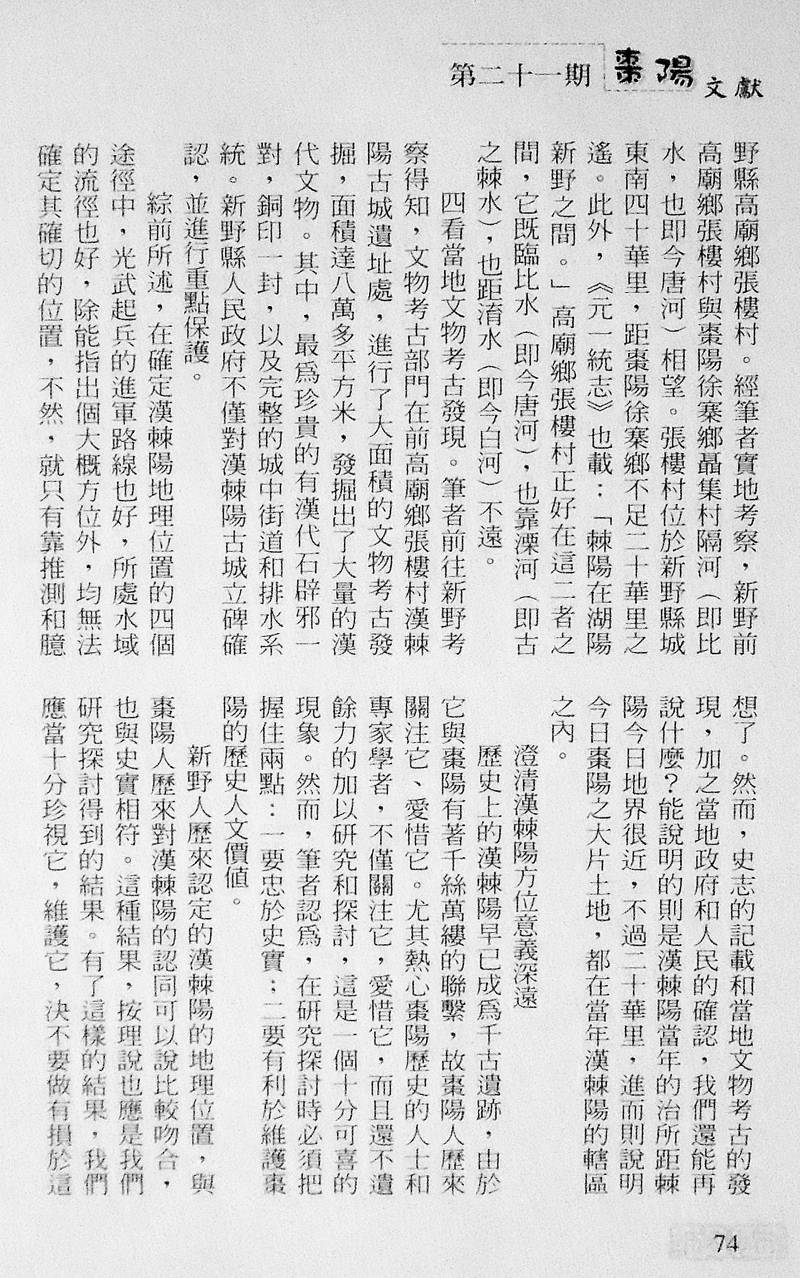 第二十一期 棗陽文獻
野縣高廟鄉張樓村。經筆者實地考察，新野前
高廟鄉張樓村與棗陽徐寨鄉聶集村隔河（即比
水，也即今唐河）相望。張樓村位於新野縣城
東南四十華里，距棗陽徐寨鄉不足二十華里之
遙。此外，《元一統志》也載：「棘陽在湖陽
新野之間。」高廟鄉張樓村正好在這二者之
間，它既臨比水（即今唐河），也靠溧河（即古
之棘水），也距淯水（即今白河）不遠。
四看當地文物考古發現。筆者前往新野考
察得知，文物考古部門在前高廟鄉張樓村漢棘
陽古城遺址處，進行了大面積的文物考古發
掘，面積達八萬多平方米，發掘出了大量的漢
代文物。其中，最爲珍貴的有漢代石辟邪一
對，銅印一封，以及完整的城中街道和排水系
統。新野縣人民政府不僅對漢棘陽古城立碑確
認，並進行重點保護。
綜前所述，在確定漢棘陽地理位置的四個
途徑中，光武起兵的進軍路線也好，所處水域
的流徑也好，除能指出個大概方位外，均無法
確定其確切的位置，不然，就只有靠推測和臆
想了。然而，史志的記載和當地文物考古的發
現，加之當地政府和人民的確認，我們還能再
說什麼？能說明的則是漢棘陽當年的治所距棘
陽今日地界很近，不過二十華里，進而則說明
今日棗陽之大片土地，都在當年漢棘陽的轄區
之內。
澄清漢棘陽方位意義深遠
歷史上的漢棘陽早已成爲千古遺跡，由於
它與棗陽有著千絲萬縷的聯繫，故棗陽人歷來
關注它、愛惜它。尤其熱心棗陽歷史的人士和
專家學者，不僅關注它，愛惜它，而且還不遺
餘力的加以研究和探討，這是一個十分可喜的
現象。然而，筆者認爲，在研究探討時必須把
握住兩點：一要忠於史實；二要有利於維護棗
陽的歷史人文價值。
新野人歷來認定的漢棘陽的地理位置，與
棗陽人歷來對漢棘陽的認同可以說比較吻合，
也與史實相符。這種結果，按理說也應是我們
研究探討得到的結果。有了這樣的結果，我們
應當十分珍視它，維護它，決不要做有損於這
74